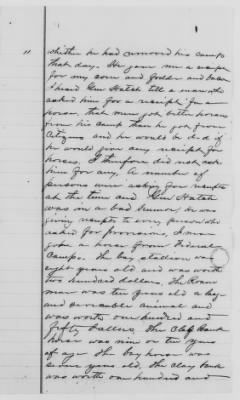 11 whither he had removed his camp
that day. He gave me a receipt
for my corn and fodder and
I heard Gen Hatch tell a man who
asked him for a receipt for a
horse that men got better horses
from his camp than he got from
Citizens and he would be d—d if
he would give any receipt for
horses. I therefore did not ask
him for any. A number of
persons were asking for receipts
at the time and Gen Hatch
was in a bad humor, he was
giving receipts to every person who
asked for provisions, I never
got a horse from Federal
Camps. The bay stallion was
eight years old and was worth
two hundred dollars. The Roan
mare was ten years old a large
and serviceable animal and
was worth one hundred and
fifty dollars. The Clay bank
horse was nine or ten years
of age. The bay horse was
seven years old. The clay bank
was worth one hundred and